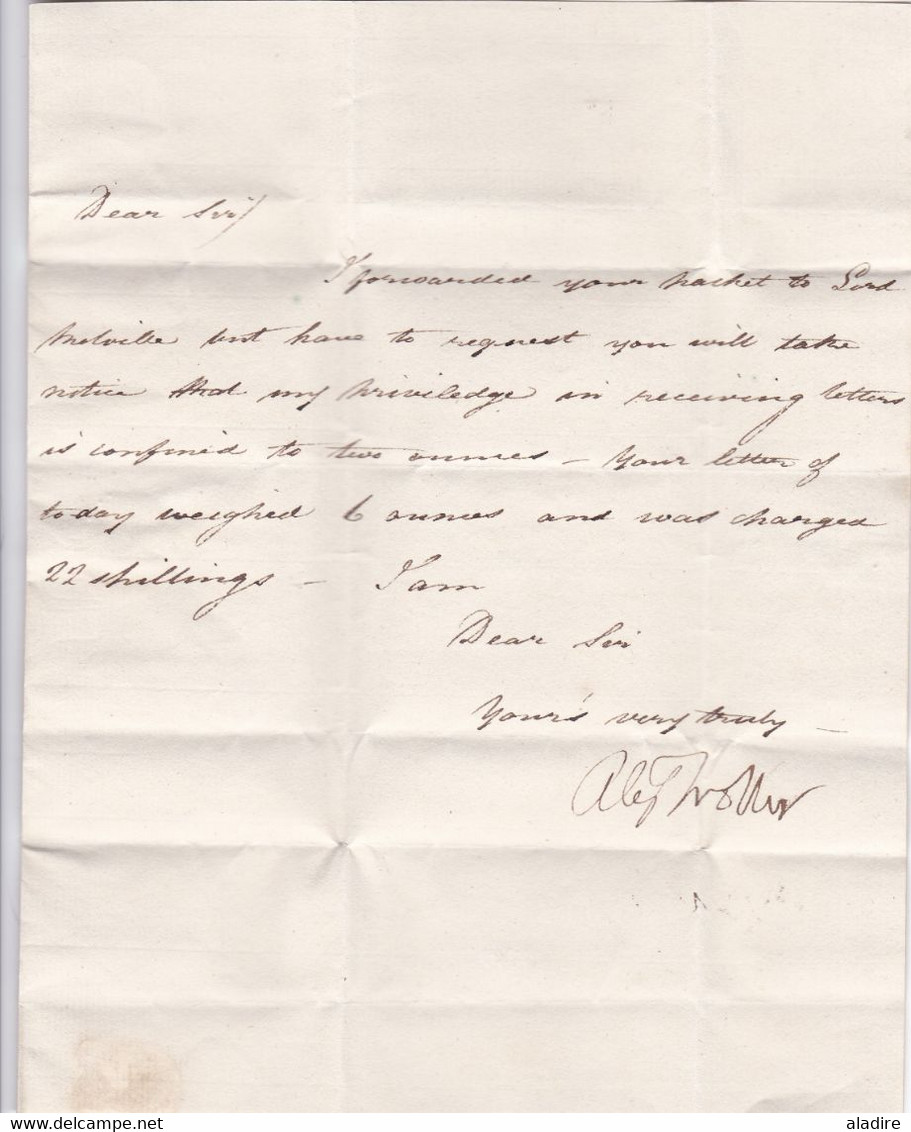 Dear Sir/
I forwarded your packet to Lord
Melville but have to request you will take
notice that my priviledge in receiving letters
is confined to two ounces – Your letter of
today weighed 6 ounces and was charged
22 shillings – I am
Dear Sir
Your's very truly –
Alex Trotter
delcampe.net
aladire